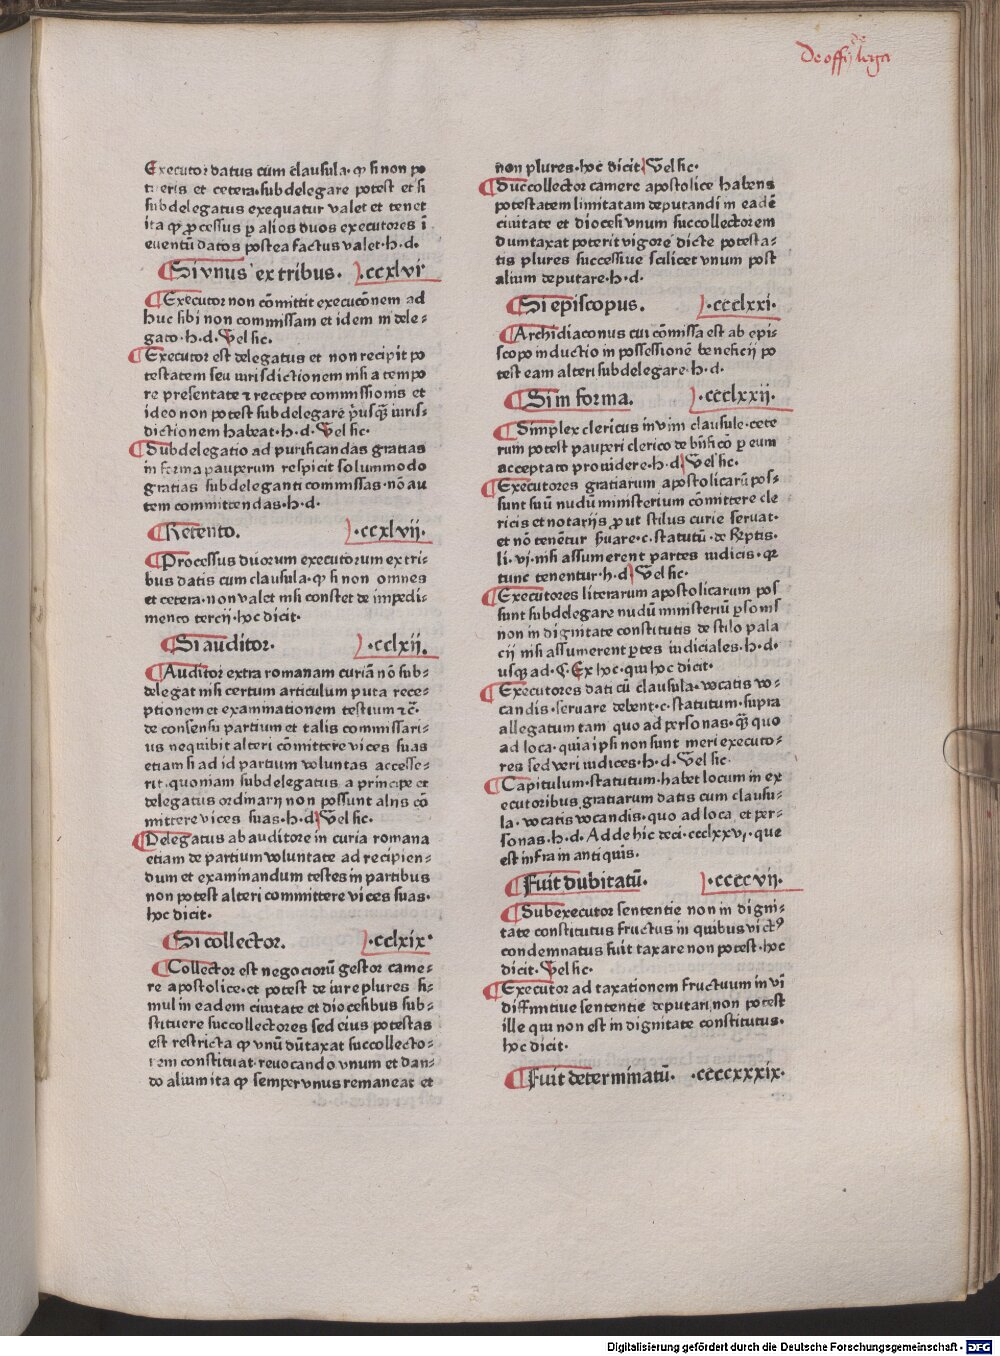 De offi de lega
Executor datus cum clausula· ꝙ si non po
teris et cetera·subdelegare potest et si
subdelegatus exequatur valet et tenet
ita ꝙ ꝓcessus ꝑ alios duos executores ī
euentū datos postea factus valet·h·d·
Si vnus ex tribus. .ccxlvi
Executor non cōmittit execucōnem ad
huc sibi non commissam et idem in dele⸗
gato·h·d·Vel sic·
Executor est delegatus et non recipit po
testatem seu iurisdictionem nisi a tempo
re presentate ⁊ recepte commissionis et
ideo non potest subdelegare pͥusqͣꝫ iuris⸗
dictionem habeat·h·d·Vel sic·
Subdelegatio ad purificandas gratias
in forma pauperum respicit solummodo
gratias subdeleganti commissas·nō au
tem committendas·h·d·
Retento. ·ccxlvij·
Processus duorum executorum ex tri⸗
bus datis cum clausula·ꝙ si non omnes
et cetera·non valet nisi constet de impedi⸗
mento tercij·hoc dicit·
Si auditor. ·cclxij.
Auditor extra romanam curiā nō sub⸗
delegat nisi certum articulum puta rece⸗
ptionem et examinationem testium ⁊c̄·
de consensu partium et talis commissari⸗
us nequibit alteri cōmittere vices suas
etiam si ad id partium voluntas accesse⸗
rit·quoniam subdelegatus a principe et
delegatus ordinarij non possunt alijs cō
mittere vices suas·h·d Vel sic·
Delegatus ab auditore in curia romana
etiam de partium voluntate ad recipien⸗
dum et examinandum testes in partibus
non potest alteri committere vices suas·
hoc dicit·
Si collector. ·cclxix·
Collector est negociorū gestor came⸗
re apostolice·et potest de iure plures si⸗
mul in eadem ciuitate et diocesibus sub⸗
stituere succollectores sed eius potestas
est restricta ꝙ vnū dūtaxat succollecto⸗
rem constituat·reuocando vnum et dan⸗
do alium ita ꝙ semper vnus remaneat et
non plures·hoc dicit Vel sic·
Succollector camere apostolice habens
potestatem limitatam deputandi in eadē
ciuitate et diocesi vnum succollectorem
dumtaxat poterit vigore dicte potesta⸗
tis plures successiue scilicet vnum post
alium deputare·h·d·
Si episcopus. ·ccclxxi·
Archidiaconus cui cōmissa est ab epi⸗
scopo inductio in possessionē beneficij po
test eam alteri subdelegare·h·d·
Si in forma. ·ccclxxij·
Simplex clericus in vim clausule·cete
rum potest pauperi clerico de bn̄ficō ꝑ eum
acceptato prouidere·h·d Vel sic·
Executores gratiarum apostolicarū pos⸗
sunt suū nudū ministerium cōmittere cle
ricis et notarijs ꝓut stilus curie seruat·
et nō tenētur ẜuare·c·statutū·de Rꝑtis·
li·vi·nisi assumerent partes iudicis·qꝛ
tunc tenentur·h·d Vel sic·
Executores literarum apostolicarum pos
sunt subdelegare nudū ministeriū ꝑsonis
non in dignitate constitutis de stilo pala
cij nisi assumerent ꝑtes iudiciales·h·d·
usqꝫ ad·§·Ex hoc·qui hoc dicit·
Executores dati cū clausula·vocatis vo⸗
candis·seruare debent·c·statutum·supra
allegatum tam quo ad personas·qͣꝫ quo
ad loca·quia ipsi non sunt meri executo⸗
res sed veri iudices·h·d·Vel sic·
Capitulum·statutum·habet locum in ex
ecutoribus gratiarum datis cum clausu⸗
la·vocatis vocandis·quo ad loca et per⸗
sonas·h·d·Adde hic deci·ccclxxvi·que
est infra in antiquis.
Fuit dubitatū. ·ccccvij.
Subexecutor sententie non in digni⸗
tate constitutus fructus in quibus victꝰ
condemnatus fuit taxare non potest·hoc
dicit·Vel sic·
Executor ad taxationem fructuum in vi
diffinitiue sententie deputari non potest
ille qui non est in dignitate constitutus·
hoc dicit·
Fuit determinatū. ·ccccxxxix·
Digitalisierung gefördert durch die Deutsche Forschungsgemeinschaft · DFG